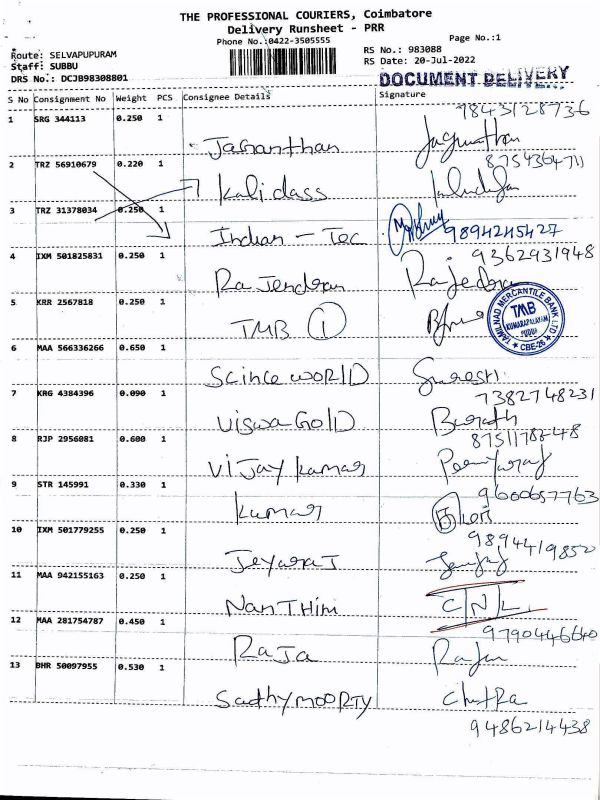 THE PROFESSIONAL COURIERS, Coimbatore
Delivery Runsheet - PRR
Phone No.:0422-3505555
Page No.:1
Route: SELVAPUPURAM
Staff: SUBBU
DRS No.: DCJB98308801
RS No.: 983088
RS Date: 20-Jul-2022
DOCUMENT DELIVERY
S No Consignment No Weight PCS Consignee Details Signature
9843128736
1 SRG 344113 0.250 1
Jaganthan Jagunathan
8754364711
2 TRZ 56910679 0.220 1
Kalidass
3 TRZ 31378034 0.250 1
Indian - Tec 9894245427
9362931948
4 IXM 501825831 0.250 1
Rajendran Rajedra
5 KRR 2567818 0.250 1
TMB 1
TAMILNAD MERCANTILE BANK LTD
TMB
KUMARAPALAYAM
CBE-26
6 MAA 566336266 0.650 1
Scince WORLD Suresh
7382748231
7 KRG 4384396 0.090 1
Viswa Gold Barath
8 RJP 2956081 0.600 1
Vijay kumar
9600657763
9 STR 145991 0.330 1
kumar
9894419850
10 IXM 501779255 0.250 1
Jeyaraj
11 MAA 942155163 0.250 1
NanThini CNL
9790446640
12 MAA 281754787 0.450 1
RaJa
13 BHR 50097955 0.530 1
SadhymooRTY ChitRa
9486214438